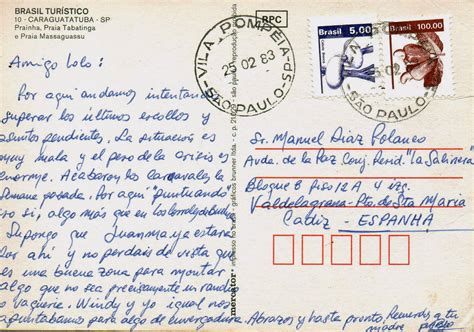 BRASIL TURÍSTICO
10 - CARAGUATATUBA - SP
Prainha, Praia Tabatinga
e Praia Massaguassu
RPC
VILA POMPEIA-SP
25 02 83
SÃO PAULO
Brasil 5,00
Brasil 100.00
SÃO PAULO
Amigo Lolo:
Por aquí andamos intentando
superar los últimos escollos y
asuntos pendientes. La situación es
muy mala y el peso de la crisis es
enorme. Acabaron los Carnavales la
semana pasada. Por aquí "puntuando"
si, algo más que en los
Supongo que Juanma ya estará
por ahí y no perdais de vista que
es una buena zona para montar
algo que no sea precisamente un rancho
o vaquerie. Windy y yo igual nos
apuntabamos para algo de envergadura. Abrazos y hasta pronto. Recuerdos a tu
madre
Sr. Manuel Díaz Polanco
Avda. de la Paz Conj. Resid. "La Salinera"
Bloque B Piso 12 A 4 izq.
Valdelagrana - Pto. de Sta María
Cadiz - ESPANHA
mercator